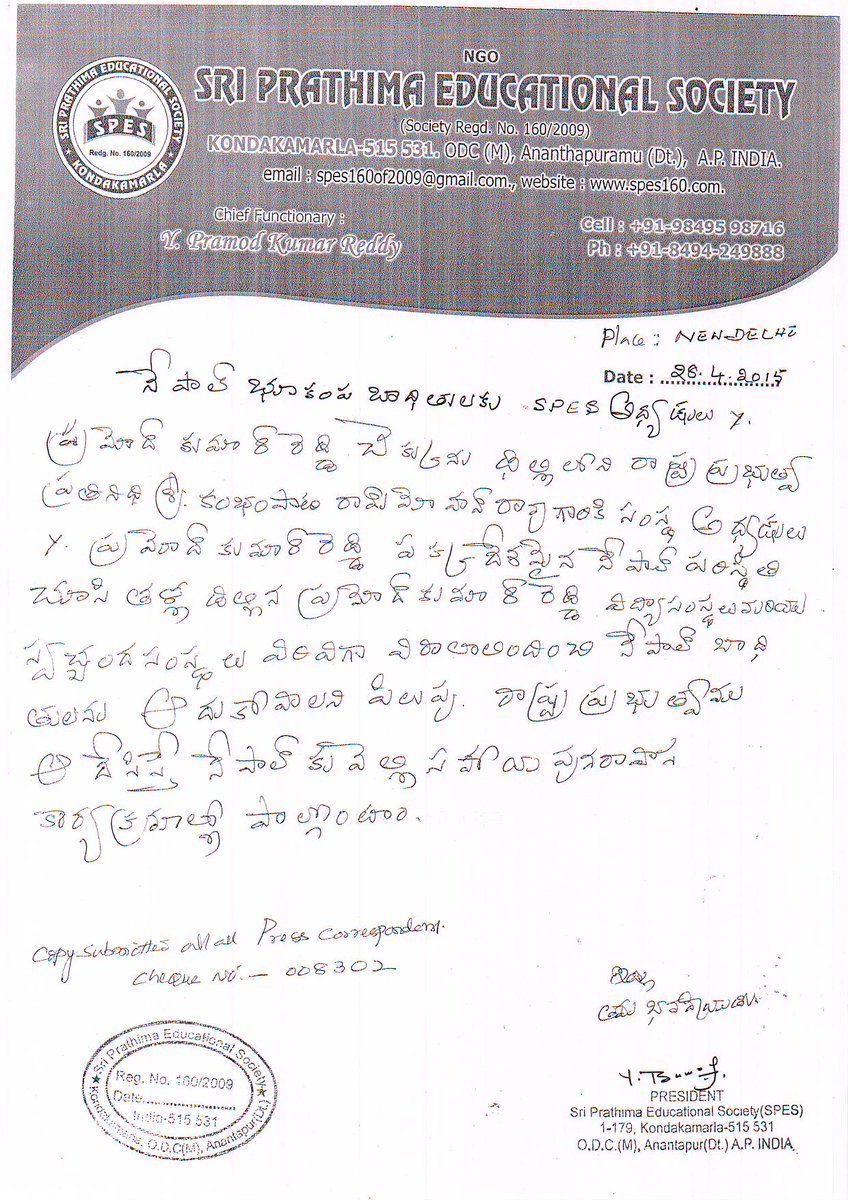 NGO
SRI PRATHIMA EDUCATIONAL SOCIETY
(Society Regd. No. 160/2009)
KONDAKAMARLA-515 531. ODC (M), Ananthapuramu (Dt.), A.P. INDIA.
email : spes160of2009@gmail.com., website : www.spes160.com.
SRI PRATHIMA EDUCATIONAL SOCIETY
SPES
Redg. No. 160/2009
KONDAKAMARLA
Chief Functionary :
Y. Pramod Kumar Reddy
Cell : +91-98495 98716
Ph : +91-8494-249888
Place : NEWDELHI
Date : 28.4.2015
నేపాల్ భూకంప బాధితులకు SPES అధ్యక్షులు Y.
ప్రమోద్ కుమార్ రెడ్డి చెక్కును ఢిల్లిలోని రాష్ట్ర ప్రభుత్వ
ప్రతినిధి శ్రీ. కంభంపాటి రామ్మోహన్ రావు గారికి సంస్థ అధ్యక్షులు
Y. ప్రమోద్ కుమార్ రెడ్డి నేపాల్ పరిస్థితి
చూసి ప్రమోద్ కుమార్ రెడ్డి విద్యాసంస్థలు మరియు
స్వచ్ఛంద సంస్థలు విరివిగా విరాళాలందించి నేపాల్ బాధి
తులను ఆదుకోవాలని పిలుపు. రాష్ట్ర ప్రభుత్వము
ఆదేసిస్తే నేపాల్ కు వెల్లి సహాయ పునరావాస
కార్యక్రమాల్లో పాల్గొంటాం.
Copy submitted all Press Correspondent.
Cheque No. - 008302
ఇట్లు
తమ భవదీయుడు
Sri Prathima Educational Society
Reg. No. 160/2009
Date..................
India-515 531
Kondakamarla, O.D.C(M), Anantapur(Dt.)
PRESIDENT
Sri Prathima Educational Society(SPES)
1-179, Kondakamarla-515 531
O.D.C.(M), Anantapur(Dt.) A.P. INDIA